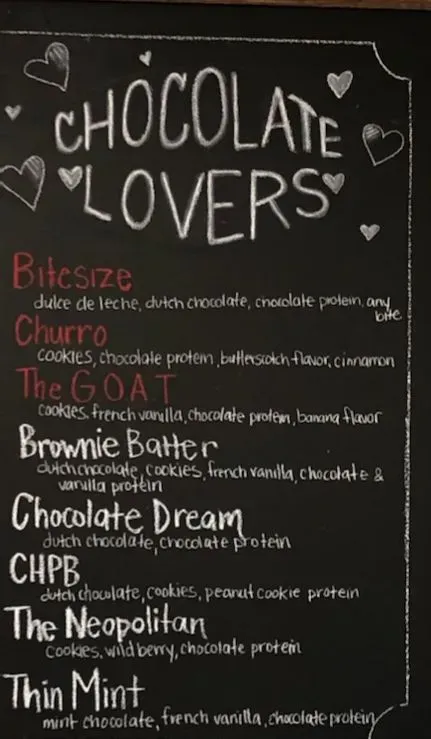 CHOCOLATE
LOVERS
Bitesize
dulce de leche, dutch chocolate, chocolate protein, any
bite
Churro
cookies, chocolate protein, butterscotch flavor, cinnamon
The G.O.A.T
cookies, french vanilla, chocolate protein, banana flavor
Brownie Batter
dutch chocolate, cookies, french vanilla, chocolate &
vanilla protein
Chocolate Dream
dutch chocolate, chocolate protein
CHPB
dutch chocolate, cookies, peanut cookie protein
The Neopolitan
cookies, wild berry, chocolate protein
Thin Mint
mint chocolate, french vanilla, chocolate protein